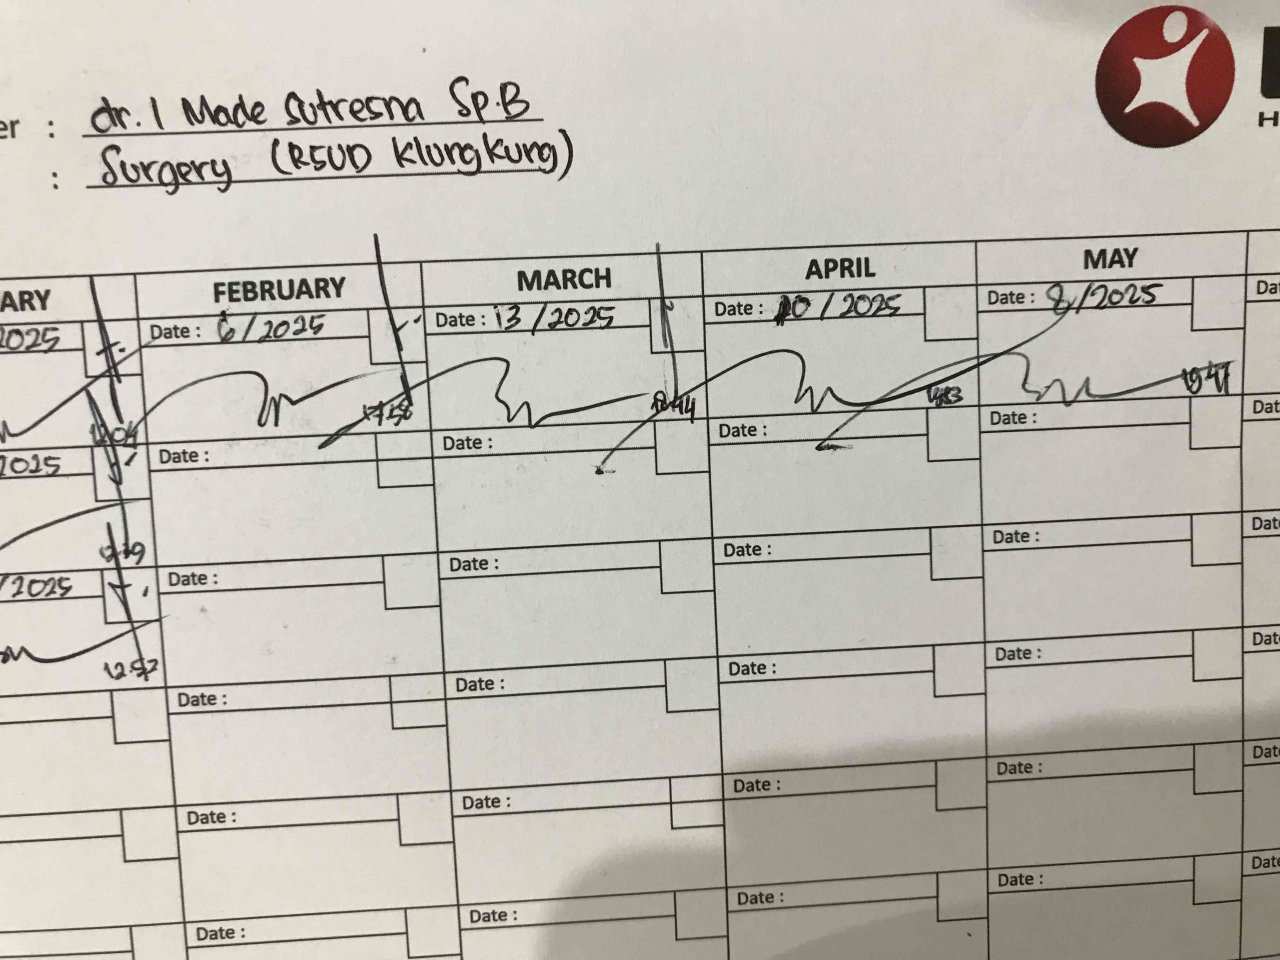 er : dr. I Made Sutresna Sp.B
: Surgery (RSUD Klungkung)
H
ARY FEBRUARY MARCH APRIL MAY
2025 Date : 6/2025 Date : 13/2025 Date : 10/2025 Date : 8/2025 Dat
12.04 17.58 19.47
2025 Date : Date : Date : Date : Dat
12.39
/2025 Date : Date : Date : Date : Dat
12.52
Date : Date : Date : Date : Dat
Date : Date : Date : Date : Dat
Date : Date : Date : Date : Dat